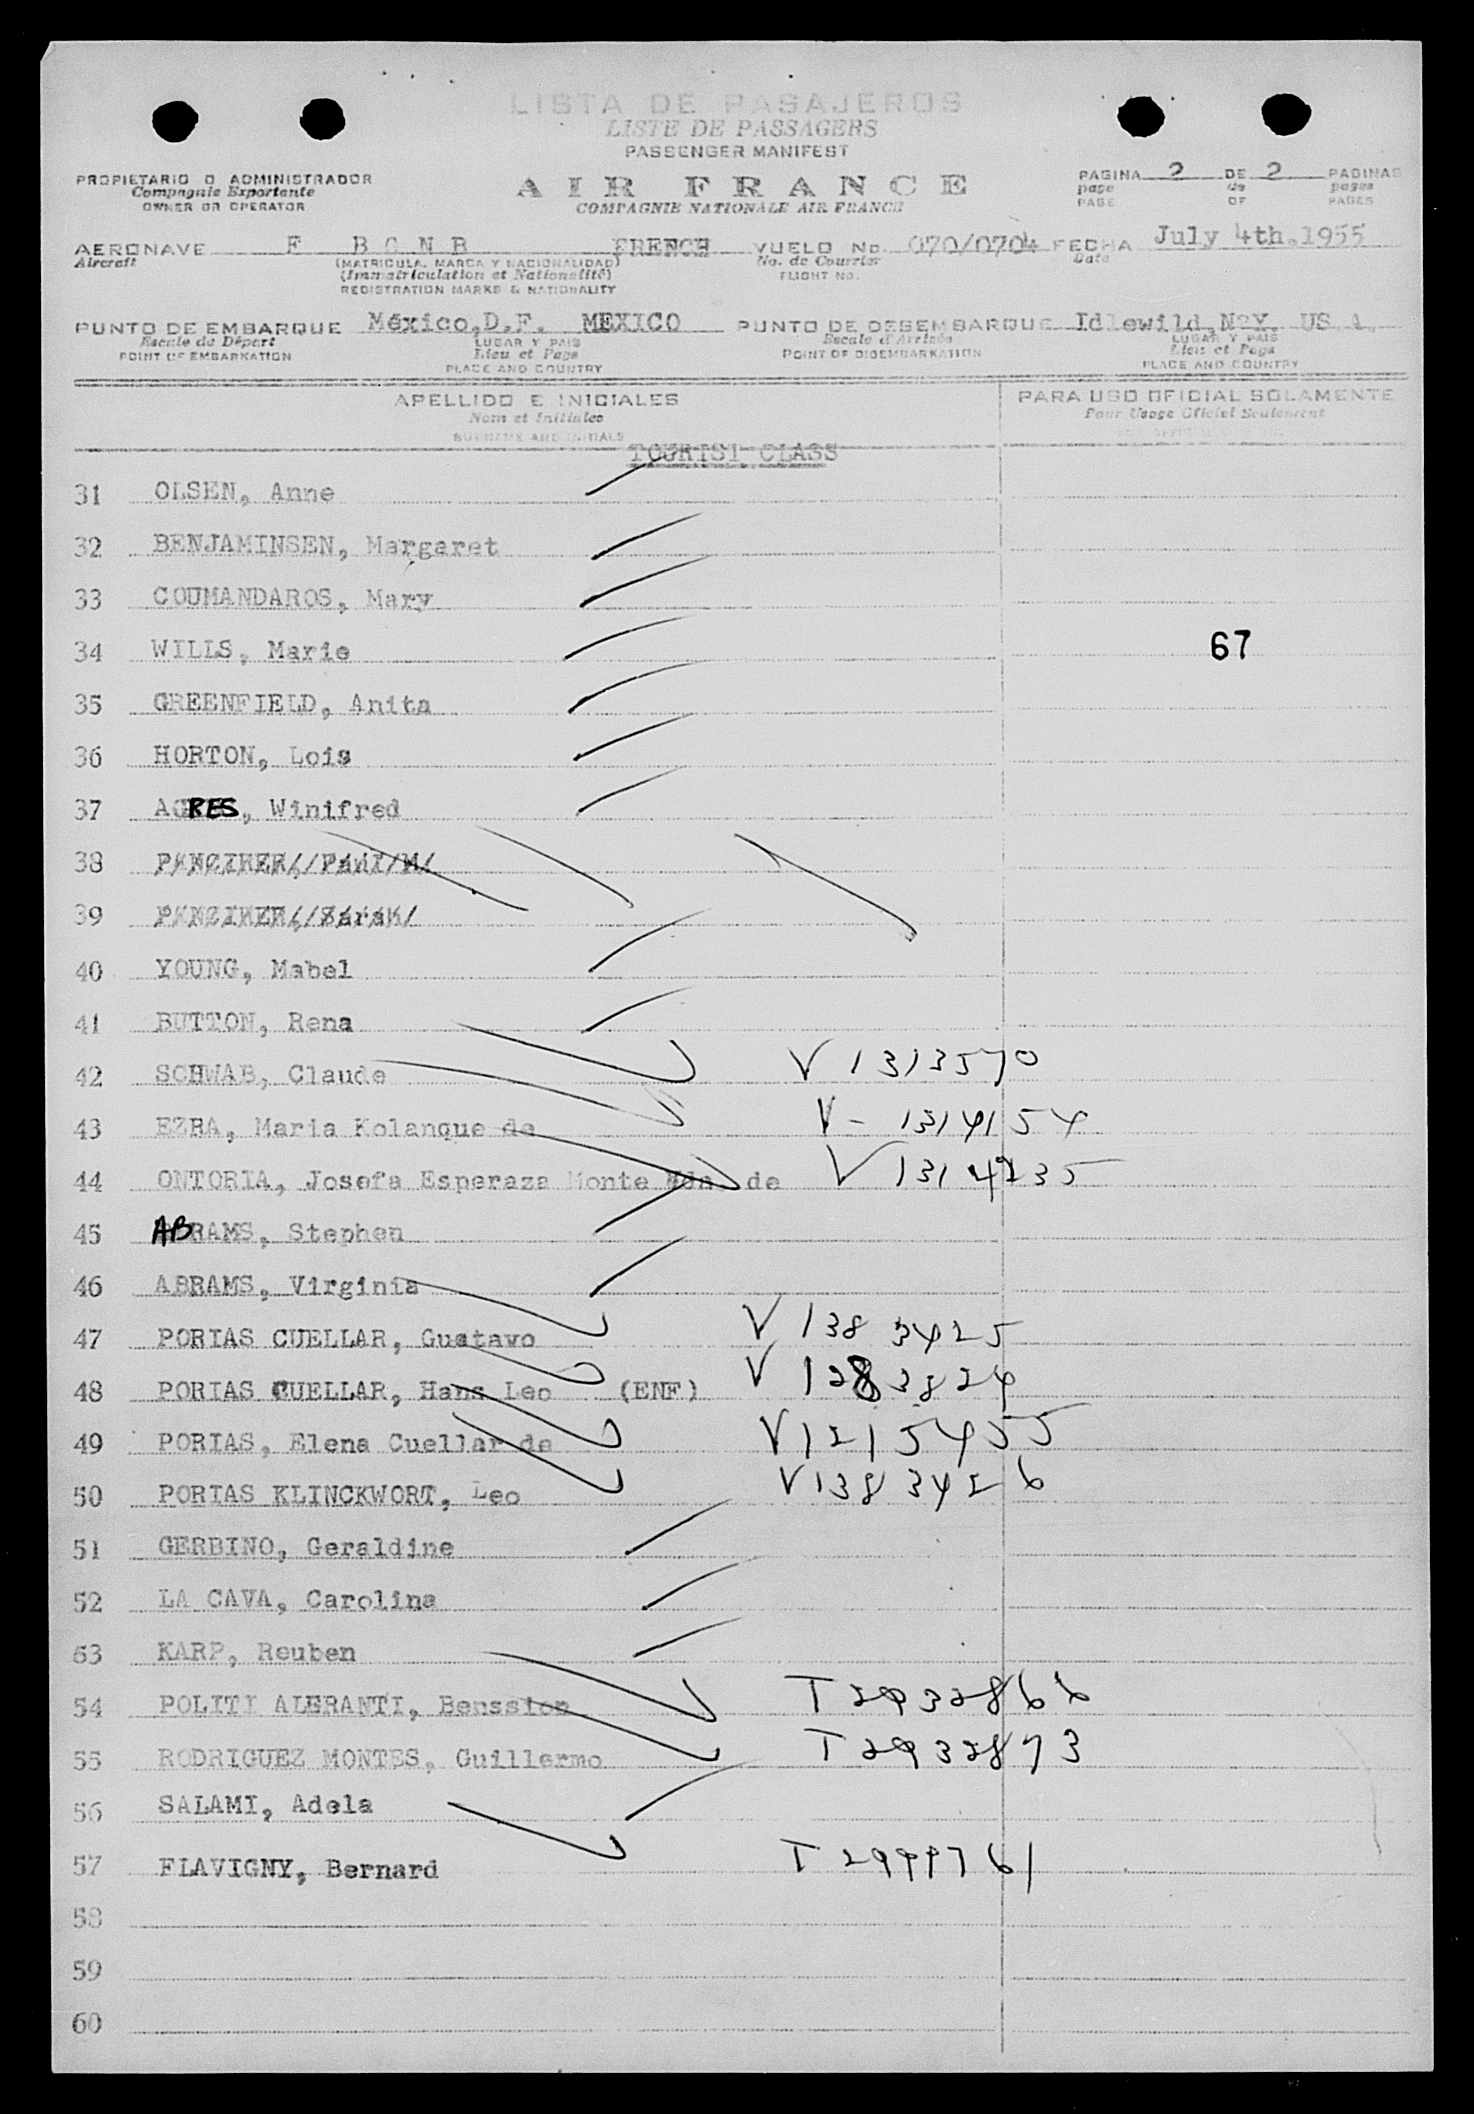 LISTA DE PASAJEROS
LISTE DE PASSAGERS
PASSENGER MANIFEST
PROPIETARIO O ADMINISTRADOR
Compagnie Exportante
OWNER OR OPERATOR
AIR FRANCE
COMPAGNIE NATIONALE AIR FRANCE
PAGINA 2 DE 2 PAGINAS
page de pages
PAGE OF PAGES
AERONAVE F B G N B FRENCH VUELO No. 070/0704 FECHA July 4th.1955
Aircraft (MATRICULA, MARCA Y NACIONALIDAD) No. de Courrier Date
(Immatriculation et Nationalité) FLIGHT NO.
REGISTRATION MARKS & NATIONALITY
PUNTO DE EMBARQUE México,D.F. MEXICO PUNTO DE DESEMBARQUE Idlewild,N.Y. US A.
Escale de Départ LUGAR Y PAIS Escale d'Arrivée LUGAR Y PAIS
POINT OF EMBARKATION Lieu et Pays POINT OF DISEMBARKATION Lieu et Pays
PLACE AND COUNTRY PLACE AND COUNTRY
APELLIDO E INICIALES PARA USO OFICIAL SOLAMENTE
Nom et Initiales Pour Usage Officiel Seulement
SURNAME AND INITIALS
TOURIST CLASS
31 OLSEN, Anne
32 BENJAMINSEN, Margaret
33 COUMANDAROS, Mary
34 WILLS, Marie 67
35 GREENFIELD, Anita
36 HORTON, Lois
37 ACRES, Winifred
38
39
40 YOUNG, Mabel
41 BUTTON, Rena
42 SCHWAB, Claude V 1313570
43 EZRA, Maria Kolanque de V- 1314154
44 ONTORIA, Josefa Esperaza Monte de V 1314235
45 ABRAMS, Stephen
46 ABRAMS, Virginia
47 PORIAS CUELLAR, Gustavo V 138 3425
48 PORIAS CUELLAR, Hans Leo (ENF) V 1283824
49 PORIAS, Elena Cuellar de V1215455
50 PORIAS KLINCKWORT, Leo V138 3426
51 GERBINO, Geraldine
52 LA CAVA, Carolina
53 KARP, Reuben
54 POLITI ALERANTI, Benssion T 2932866
55 RODRIGUEZ MONTES, Guillermo T 2932873
56 SALAMI, Adela
57 FLAVIGNY, Bernard T 2999761
58
59
60